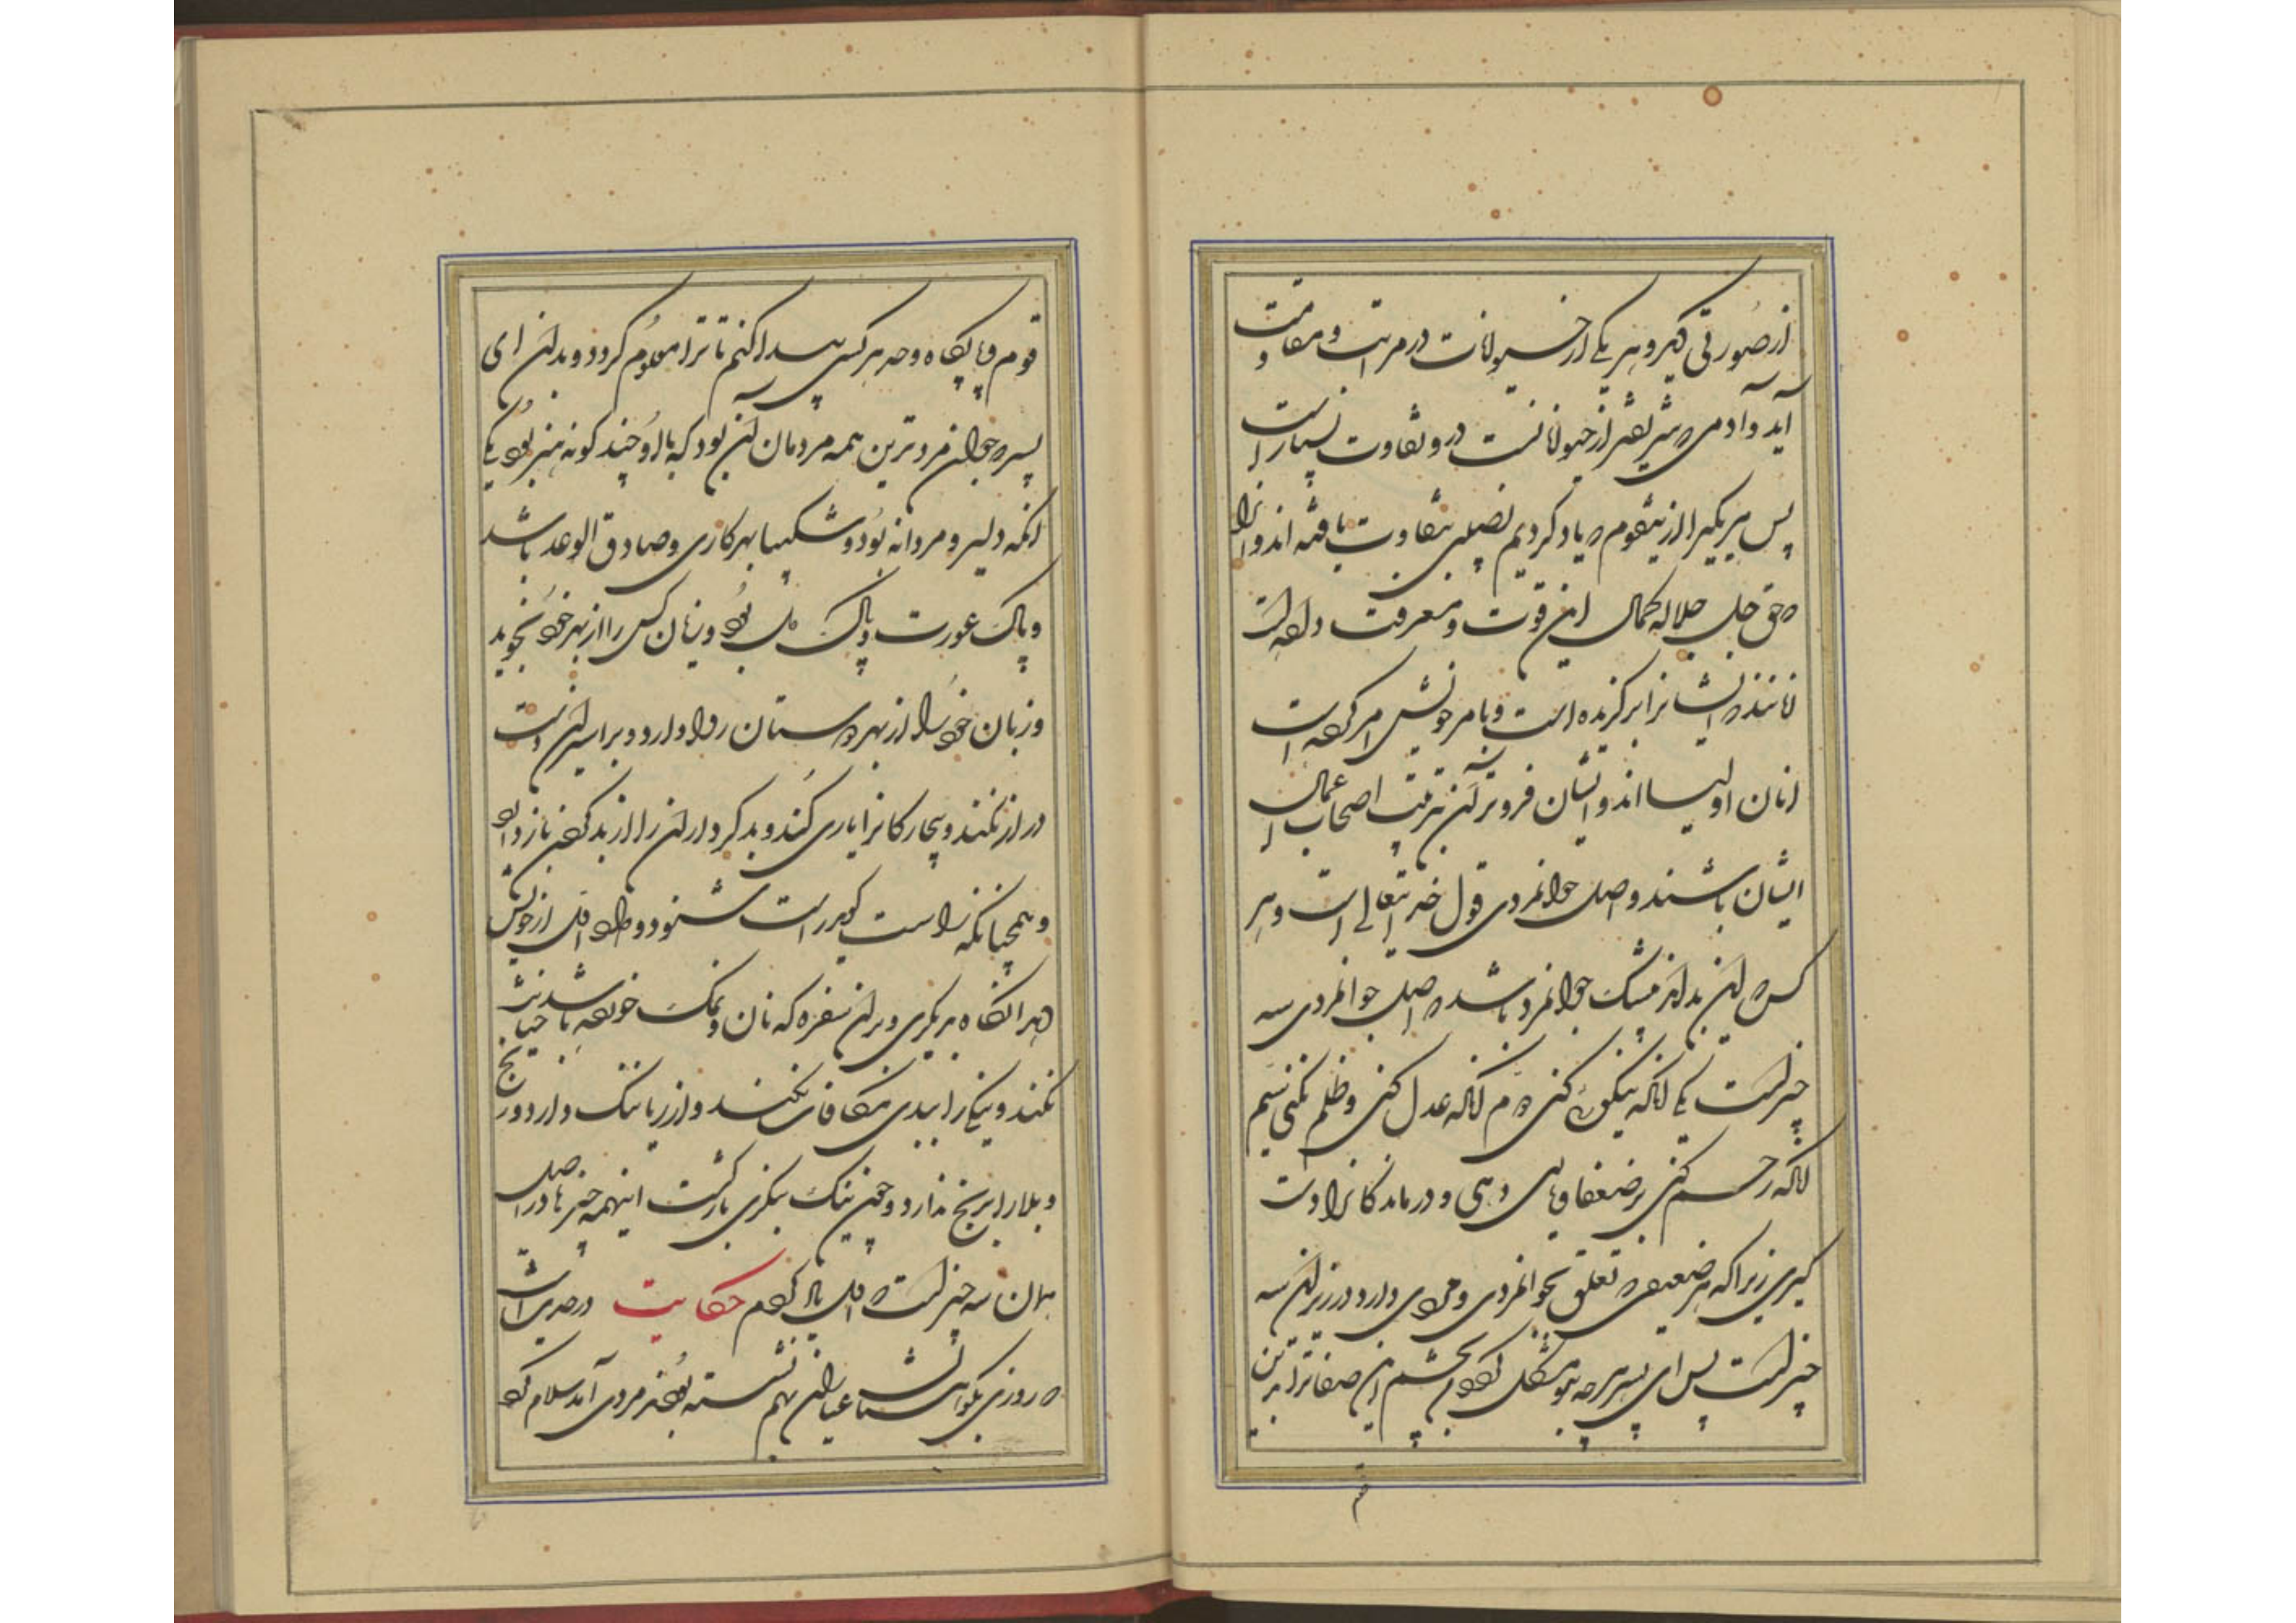 از صورتی دیگر و هر یکی از حیوانات در مراتب و مقامات
آید و آدمی که شریفتر از حیوانانست درو تفاوت بسیار است
پس هر یکی را ازین قوم که یاد کردیم نصیبی بتفاوت یافته‌اند و آنرا
که حق جل جلاله کمال این قوت و معرفت داده است
ایشانرا برگزیده است و بامر خویش امر کرده است
آنان اولیااند و ایشان فروتر آن بترتیب اصحاب اعمال
ایشان باشند و اصل جوانمردی قول خدایتعالی است و هر
کس که این بداند بیشک جوانمرد باشد که اصل جوانمردی سه
چیز است یکی آنکه نیکویی کنی دوم آنکه عدل کنی و ظلم نکنی سیم
آنکه رحم کنی بر ضعفا و یاری دهی و درماندگانرا دست
گیری زیرا که هر صفتی که تعلق بجوانمردی و مردی دارد در زیر این سه
چیز است پس ای پسر هر چه بتو مشکل بود این صفاترا بدین
قوم و پایگاه و حد هر کس پیدا کنم تا ترا معلوم گردد و بدان ای
پسر که جوانمردترین همه مردمان آن بود که با او چند گونه هنر بود یکی
آنکه دلیر و مردانه بود و شکیبا بهر کاری و صادق الوعد باشد
و پاک عورت و پاک دل بود و زیان کسی را از بهر خود نجوید
و زیان خود را از بهر دوستان روا دارد و بر اسیران دست
دراز نکند و بیچارگانرا یاری کند و بد کرداران را از بد کردن باز دارد
و همچنانکه راست گوید راست شنود و داد از خویش
بدهد آنگاه بر یکدیگر و بر آن سفره که نان و نمک خورده باشد خیانت
نکند و نیکی را ببدی مکافات نکند و از ریا ننگ دارد و رنج
و بلا را رنج ندارد و چون نیک بنگری بازگشت اینهمه چیزها در اصل
بدان سه چیز است که اول یاد کردم حکایت در حدیث است
که روزی بکوهستان عیاران بهم نشسته بودند مردی آمد سلام کرد